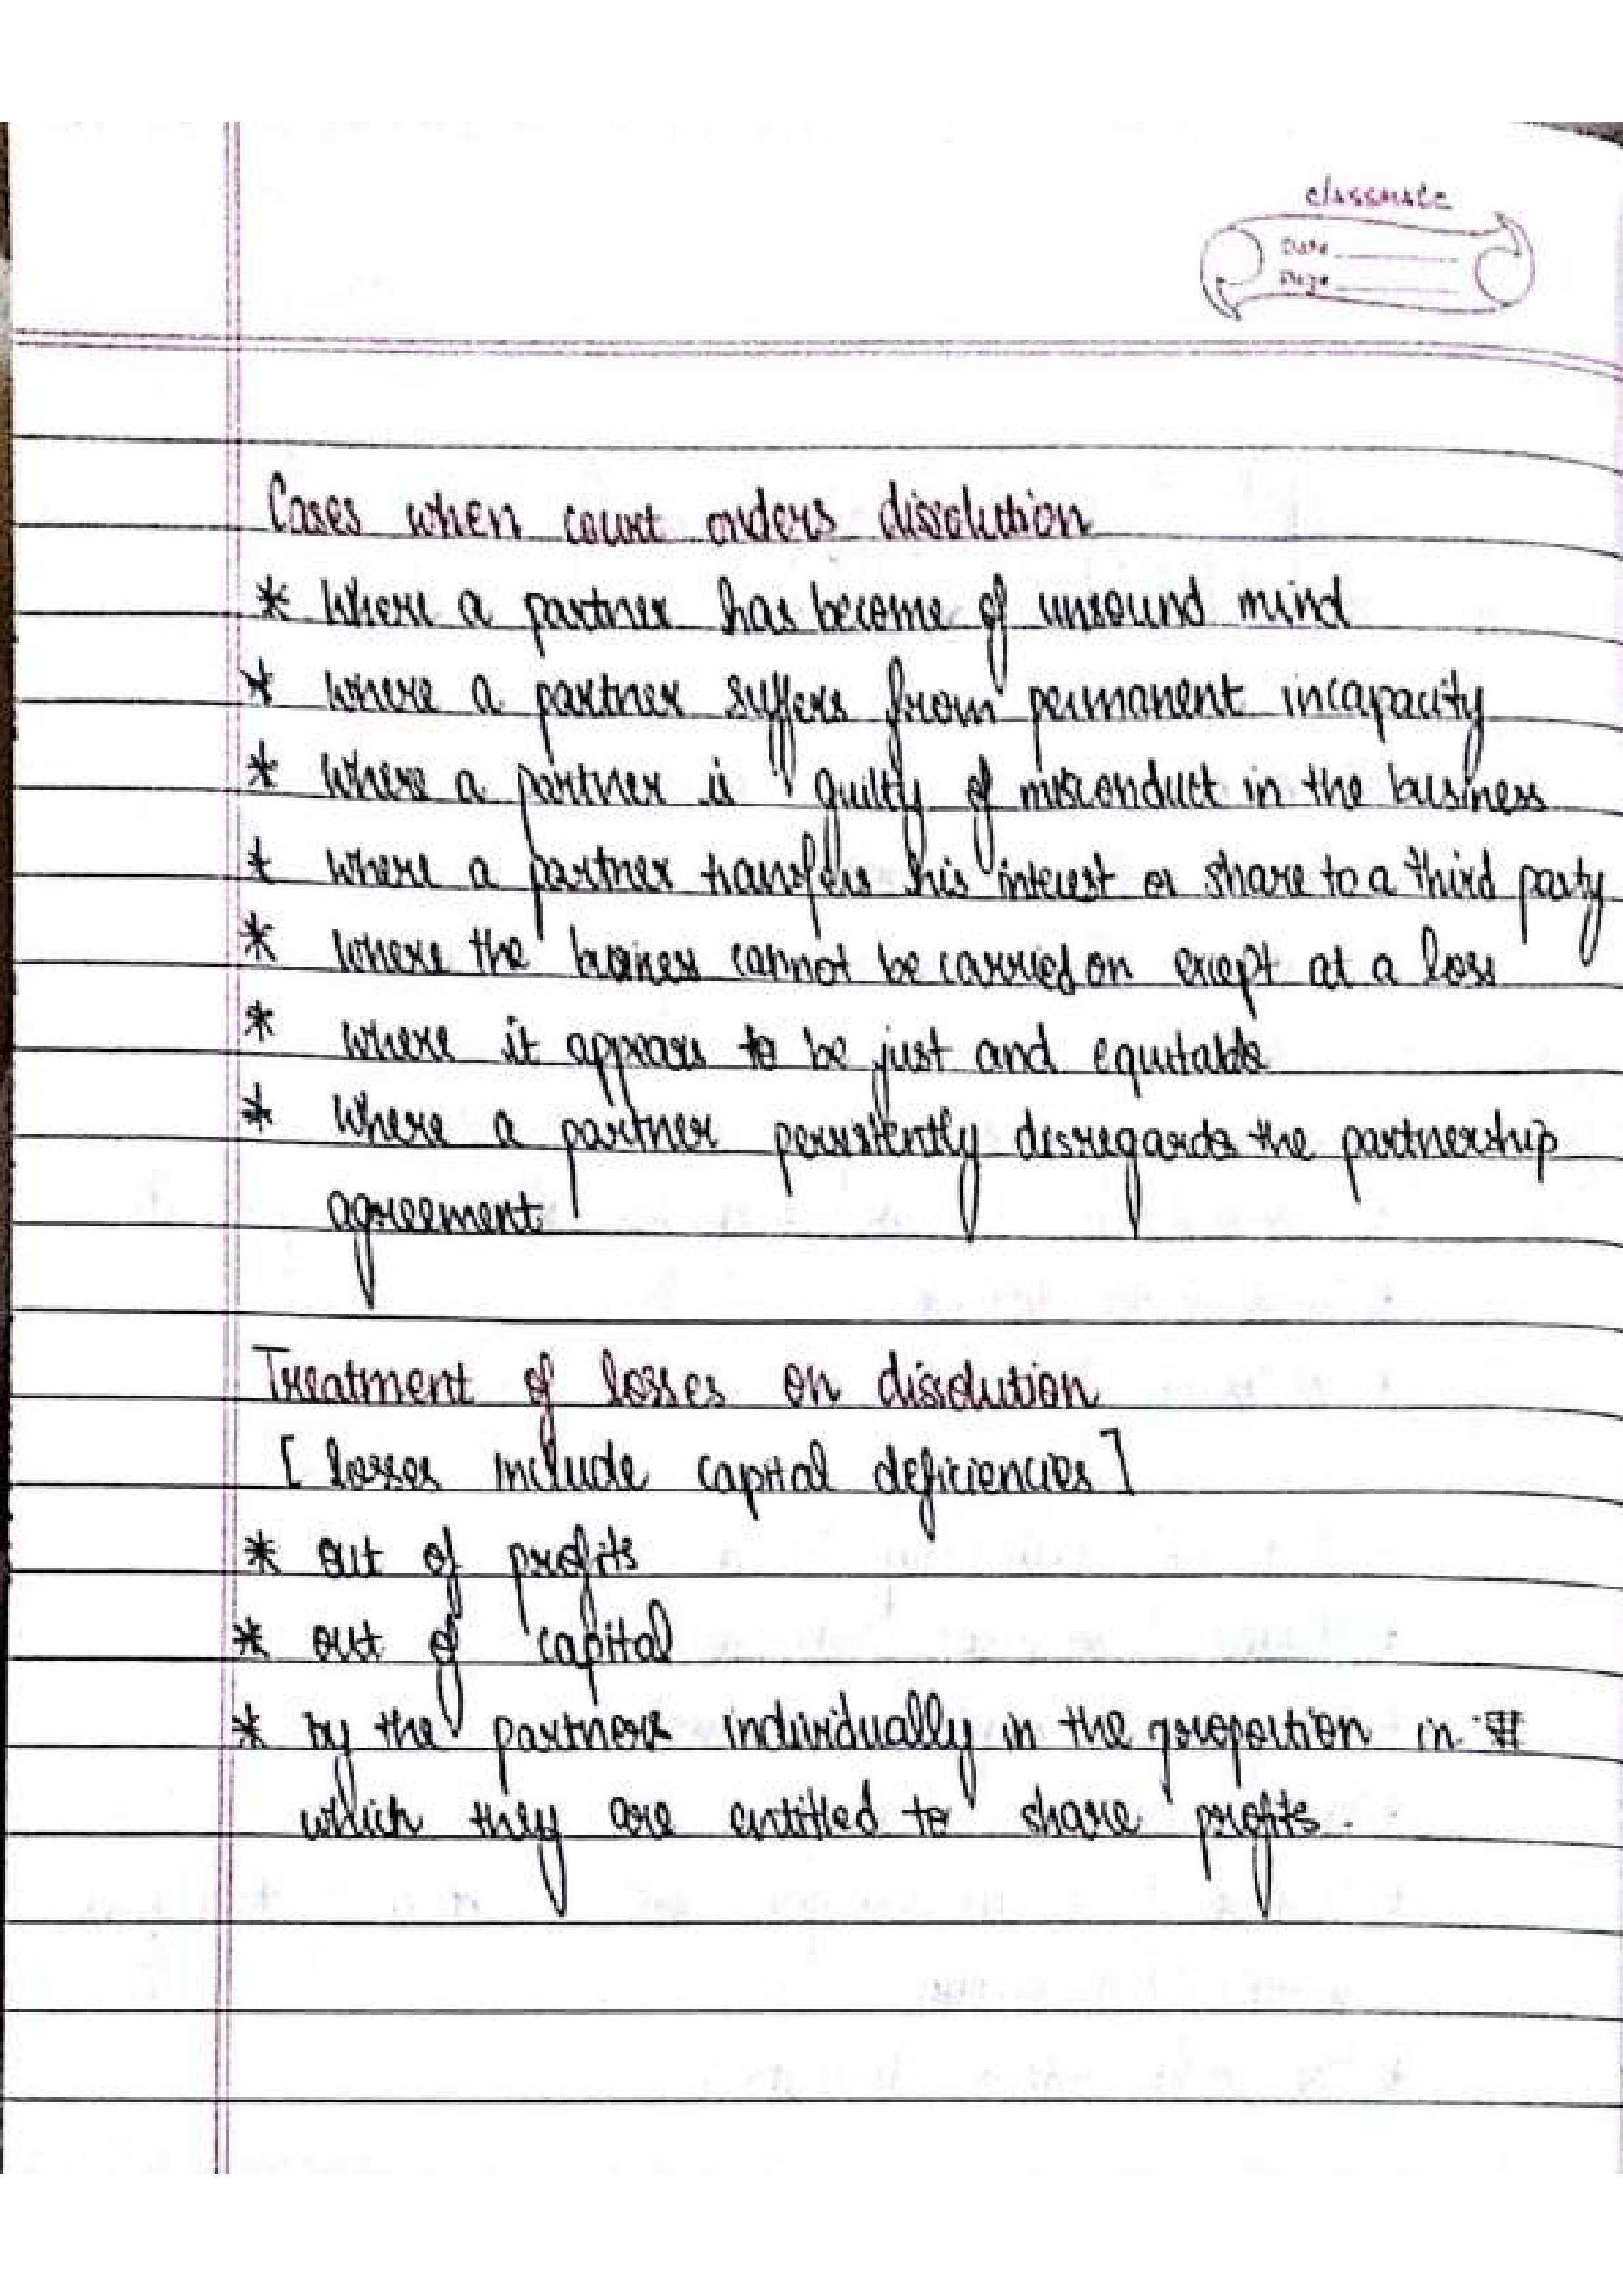 classmate
Date
Page
Cases when court orders dissolution
* Where a partner has become of unsound mind
* where a partner suffers from permanent incapacity
* where a partner is guilty of misconduct in the business
* where a partner transfers his interest or share to a third party
* where the business cannot be carried on except at a loss
* where it appears to be just and equitable
* where a partner persistently disregards the partnership
agreement.
Treatment of losses on dissolution
[ losses include capital deficiencies ]
* out of profits
* out of capital
* by the partners individually in the proportion in
which they are entitled to share profits.